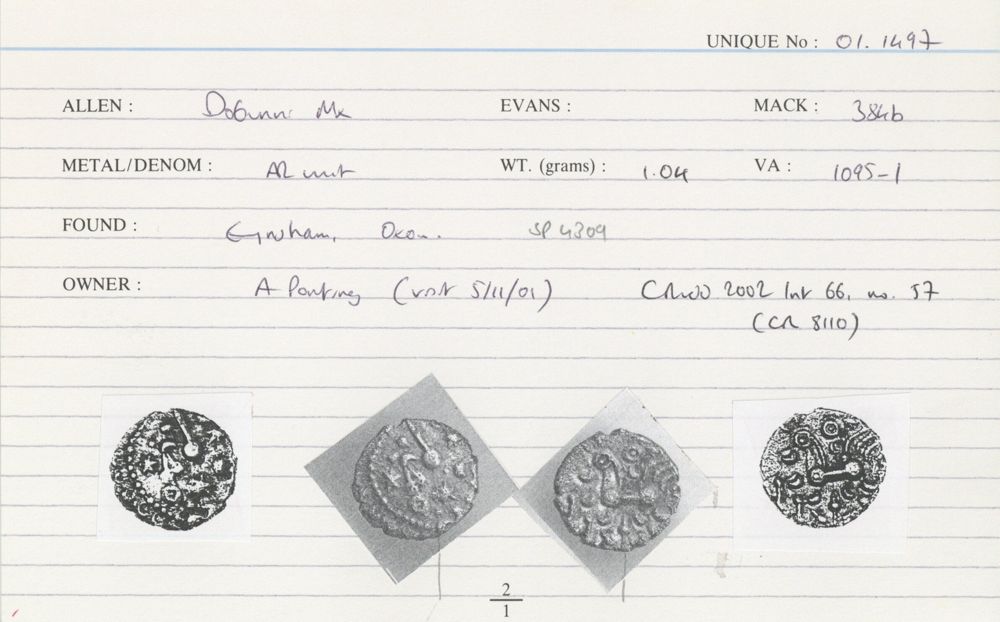 UNIQUE No : 01.1497
ALLEN : Dobunni Mx EVANS : MACK : 384b
METAL/DENOM : AR unit WT. (grams) : 1.04 VA : 1095-1
FOUND : Eynsham, Oxon. SP 4309
OWNER : A Ponting (visit 5/11/01) 2002 Int 66, no. 57
(CR 8110)
2
1